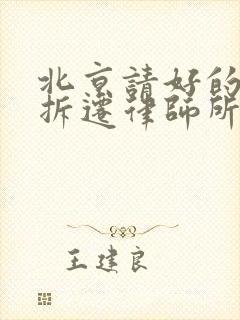 北京請好的
拆遷律師所
王建良